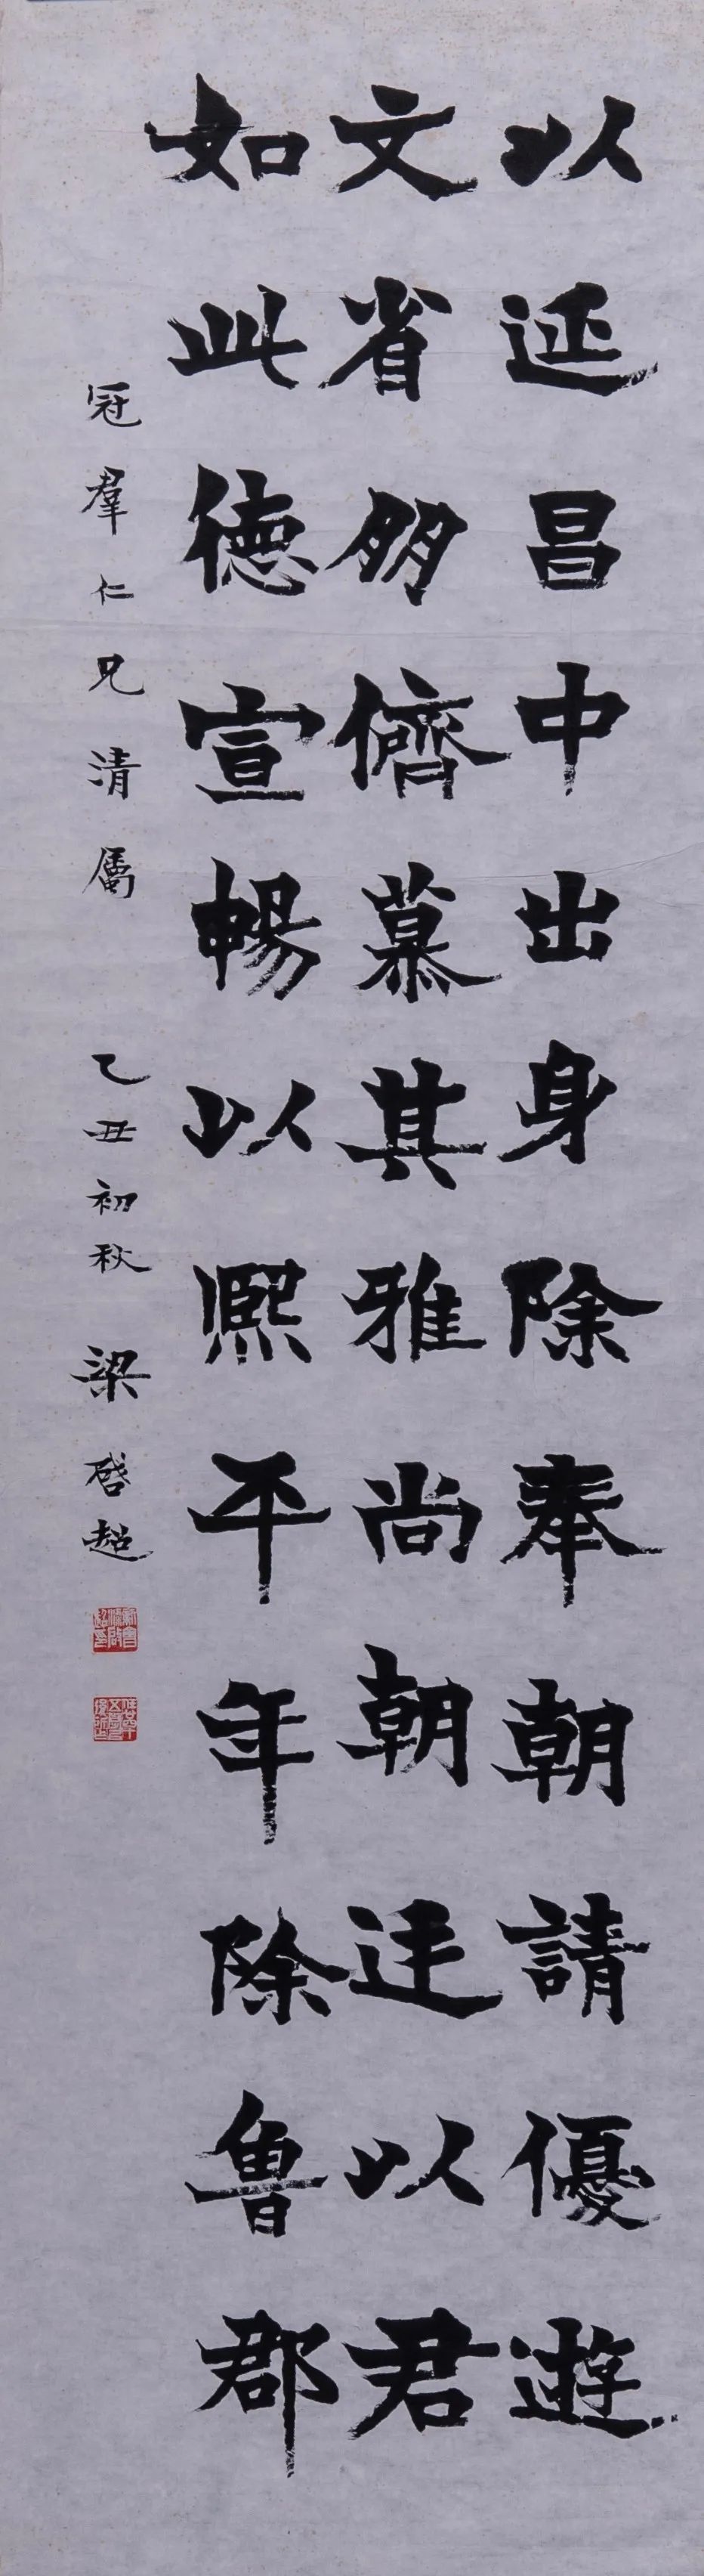 以延昌中出身除奉朝請優遊
文省朋儕慕其雅尚朝廷以君
如此德宣暢以熙平年除魯郡
冠羣仁兄清屬 乙丑初秋 梁啓超
新會梁啟超印